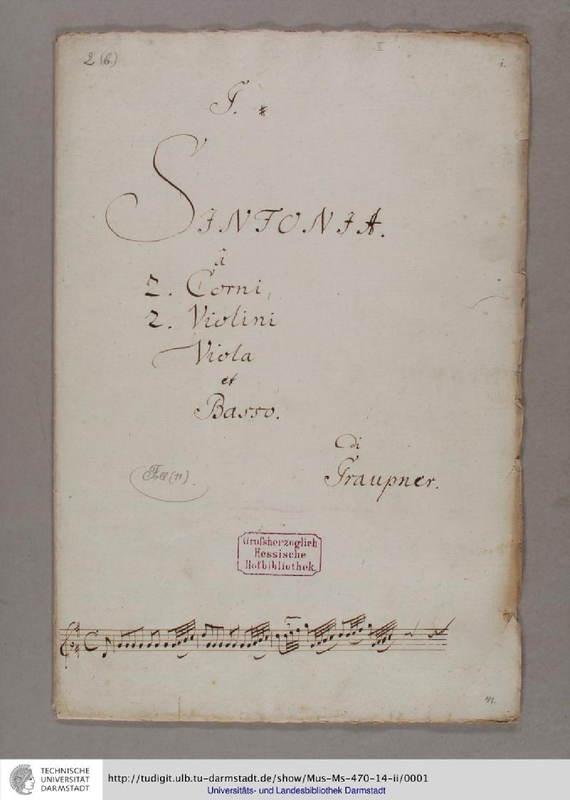 2 (6.)
II
1.
G. #
SINFONIA.
â
2. Corni,
2. Violini
Viola
et
Basso.
di
Graupner.
Großherzoglich
Hessische
Hofbibliothek.
TECHNISCHE
UNIVERSITÄT
DARMSTADT
http://tudigit.ulb.tu-darmstadt.de/show/Mus-Ms-470-14-ii/0001
Universitäts- und Landesbibliothek Darmstadt